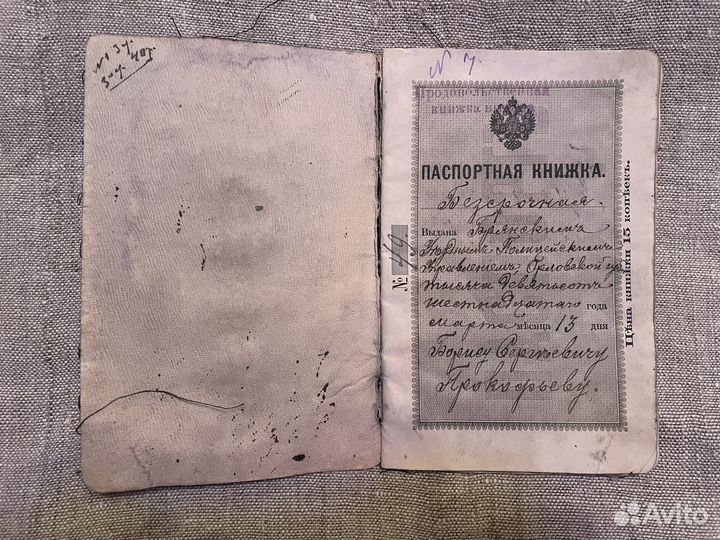 № 13 у.
№ 7.
Продовольственная
книжка
ПАСПОРТНАЯ КНИЖКА.
Безсрочная.
Выдана Брянскимъ
Уѣзднымъ Полицейскимъ
Управленіемъ Орловской губ
тысяча девятьсотъ
шестнадцатаго года
марта мѣсяца 13 дня
Борису Сергѣевичу
Прокофьеву.
№ 49
Цѣна книжки 15 копѣекъ.
Avito